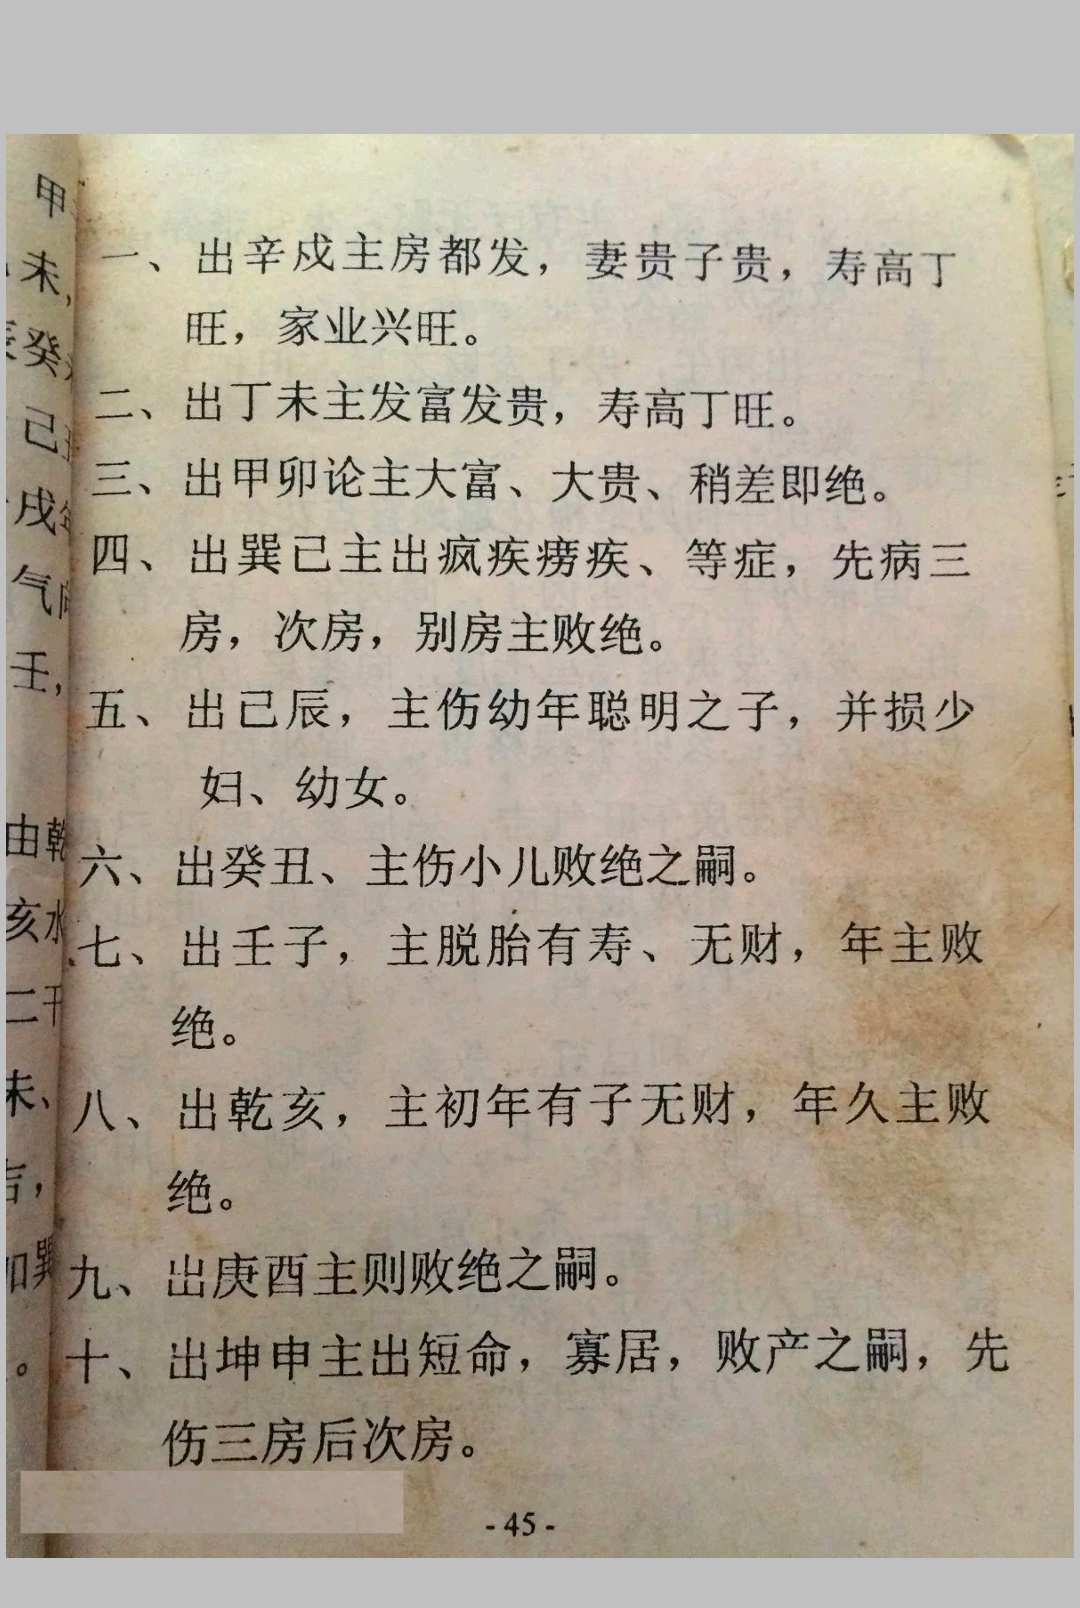 一、出辛戍主房都发，妻贵子贵，寿高丁
旺，家业兴旺。
二、出丁未主发富发贵，寿高丁旺。
三、出甲卯论主大富、大贵、稍差即绝。
四、出巽己主出疯疾痨疾、等症，先病三
房，次房，别房主败绝。
五、出己辰，主伤幼年聪明之子，并损少
妇、幼女。
六、出癸丑、主伤小儿败绝之嗣。
七、出壬子，主脱胎有寿、无财，年主败
绝。
八、出乾亥，主初年有子无财，年久主败
绝。
九、出庚酉主则败绝之嗣。
十、出坤申主出短命，寡居，败产之嗣，先
伤三房后次房。
- 45 -
甲
未，
癸
己
戌
气
壬，
由乾
亥水
二干
未、
吉，
如巽
。